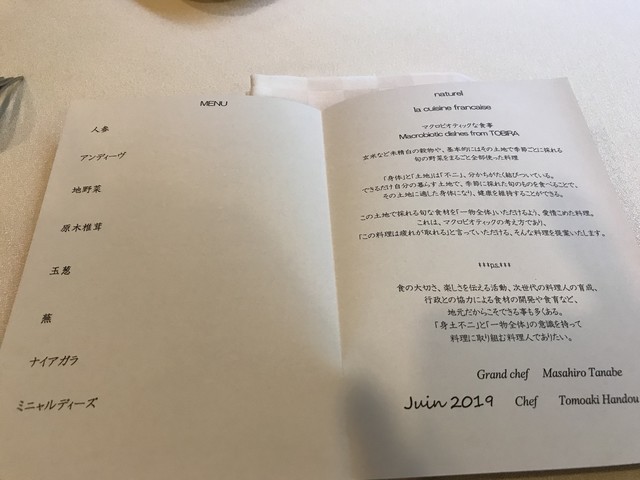 MENU
人参
アンディーヴ
地野菜
原木椎茸
玉葱
蕪
ナイアガラ
ミニャルディーズ
naturel
la cuisine francaise
マクロビオティックな食事
Macrobiotic dishes from TOBIRA
玄米など未精白の穀物や、基本的にはその土地で季節ごとに採れる
旬の野菜をまるごと全部使った料理
「身体」と「土地」は「不二」、分かちがたく結びついている。
できるだけ自分の暮らす土地で、季節に採れた旬のものを食べることで、
その土地に適した身体になり、健康を維持することができる。
この土地で採れる旬な食材を「一物全体」いただけるよう、愛情こめた料理。
これは、マクロビオティックの考え方であり、
「この料理は疲れが取れる」と言っていただける、そんな料理を提案いたします。
食の大切さ、楽しさを伝える活動、次世代の料理人の育成。
行政との協力による食材の開発や食育など、
地元だからこそできる事も多くある。
「身土不二」と「一物全体」の意識を持って
料理に取り組む料理人でありたい。
Grand chef Masahiro Tanabe
Juin 2019 Chef Tomoaki Handou